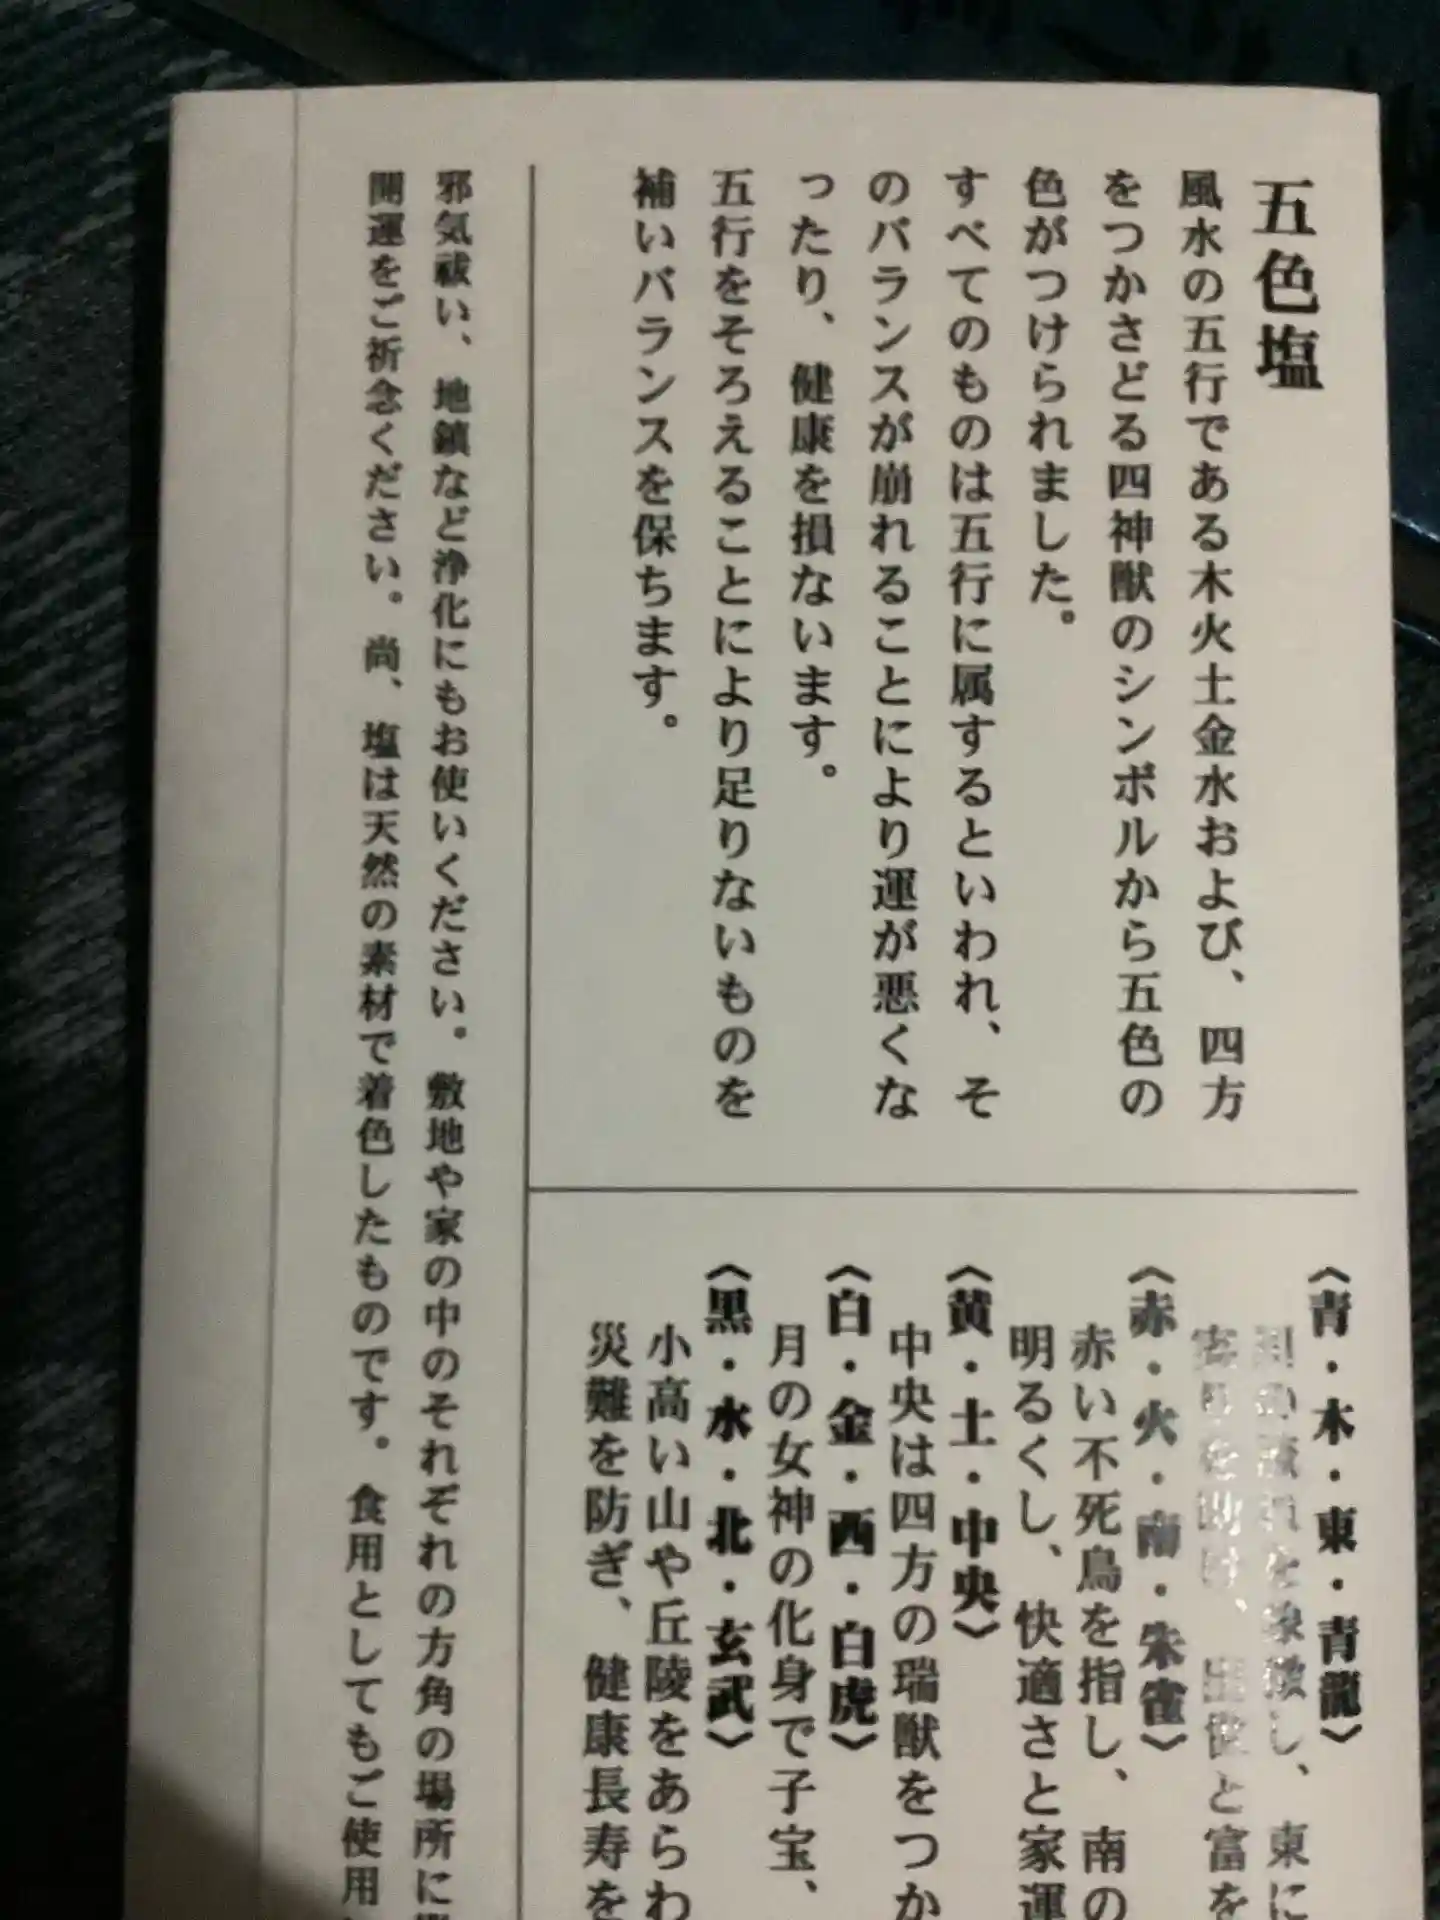 五色塩
風水の五行である木火土金水および、四方
をつかさどる四神獣のシンボルから五色の
色がつけられました。
すべてのものは五行に属するといわれ、そ
のバランスが崩れることにより運が悪くな
ったり、健康を損ないます。
五行をそろえることにより足りないものを
補いバランスを保ちます。
〈青・木・東・青龍〉
の流れを象徴し、東に
を助け、出世と富を
〈赤・火・南・朱雀〉
赤い不死鳥を指し、南の
明るくし、快適さと家運
〈黄・土・中央〉
中央は四方の瑞獣をつか
〈白・金・西・白虎〉
月の女神の化身で子宝、
〈黒・水・北・玄武〉
小高い山や丘陵をあらわ
災難を防ぎ、健康長寿を
邪気祓い、地鎮など浄化にもお使いください。敷地や家の中のそれぞれの方角の場所に
開運をご祈念ください。尚、塩は天然の素材で着色したものです。食用としてもご使用